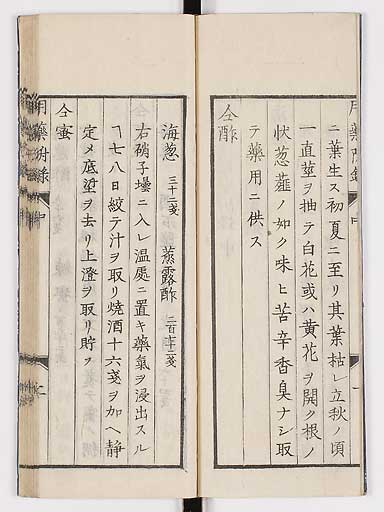 ニ葉生ス初夏ニ至リ其葉枯レ立秋ノ頃
一直莖ヲ抽テ白花或ハ黄花ヲ開ク根ノ
状葱薤ノ如ク味ヒ苦辛香臭ナシ取
テ藥用ニ供ス
仝酢
海葱 三十二戔 蒸露酢
右硝子壜ニ入レ温處ニ置キ藥氣ヲ浸出スル
ヿ七八日絞テ汁ヲ取リ焼酒十六戔ヲ加ヘ静
定メ底埿ヲ去リ上澄ヲ取リ貯フ
仝蜜
用藥附録 中